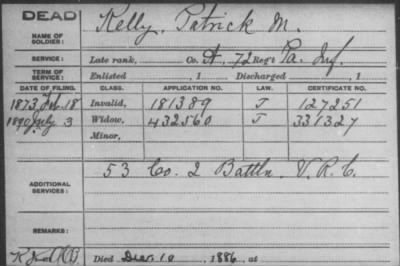 DEAD
NAME OF SOLDIER: Kelly, Patrick M.
SERVICE: Late rank, Co. A, 72 Reg't Pa. Inf.
TERM OF SERVICE: Enlisted , 1 Discharged , 1
DATE OF FILING. CLASS. APPLICATION NO. LAW. CERTIFICATE NO.
1873 Feb. 18 Invalid, 181389 J 127251
1890 July 3 Widow, 432560 J 331327
Minor,
ADDITIONAL SERVICES: 53 Co. 2 Battln. V. R. C.
REMARKS:
Died Dec. 10, 1886, at